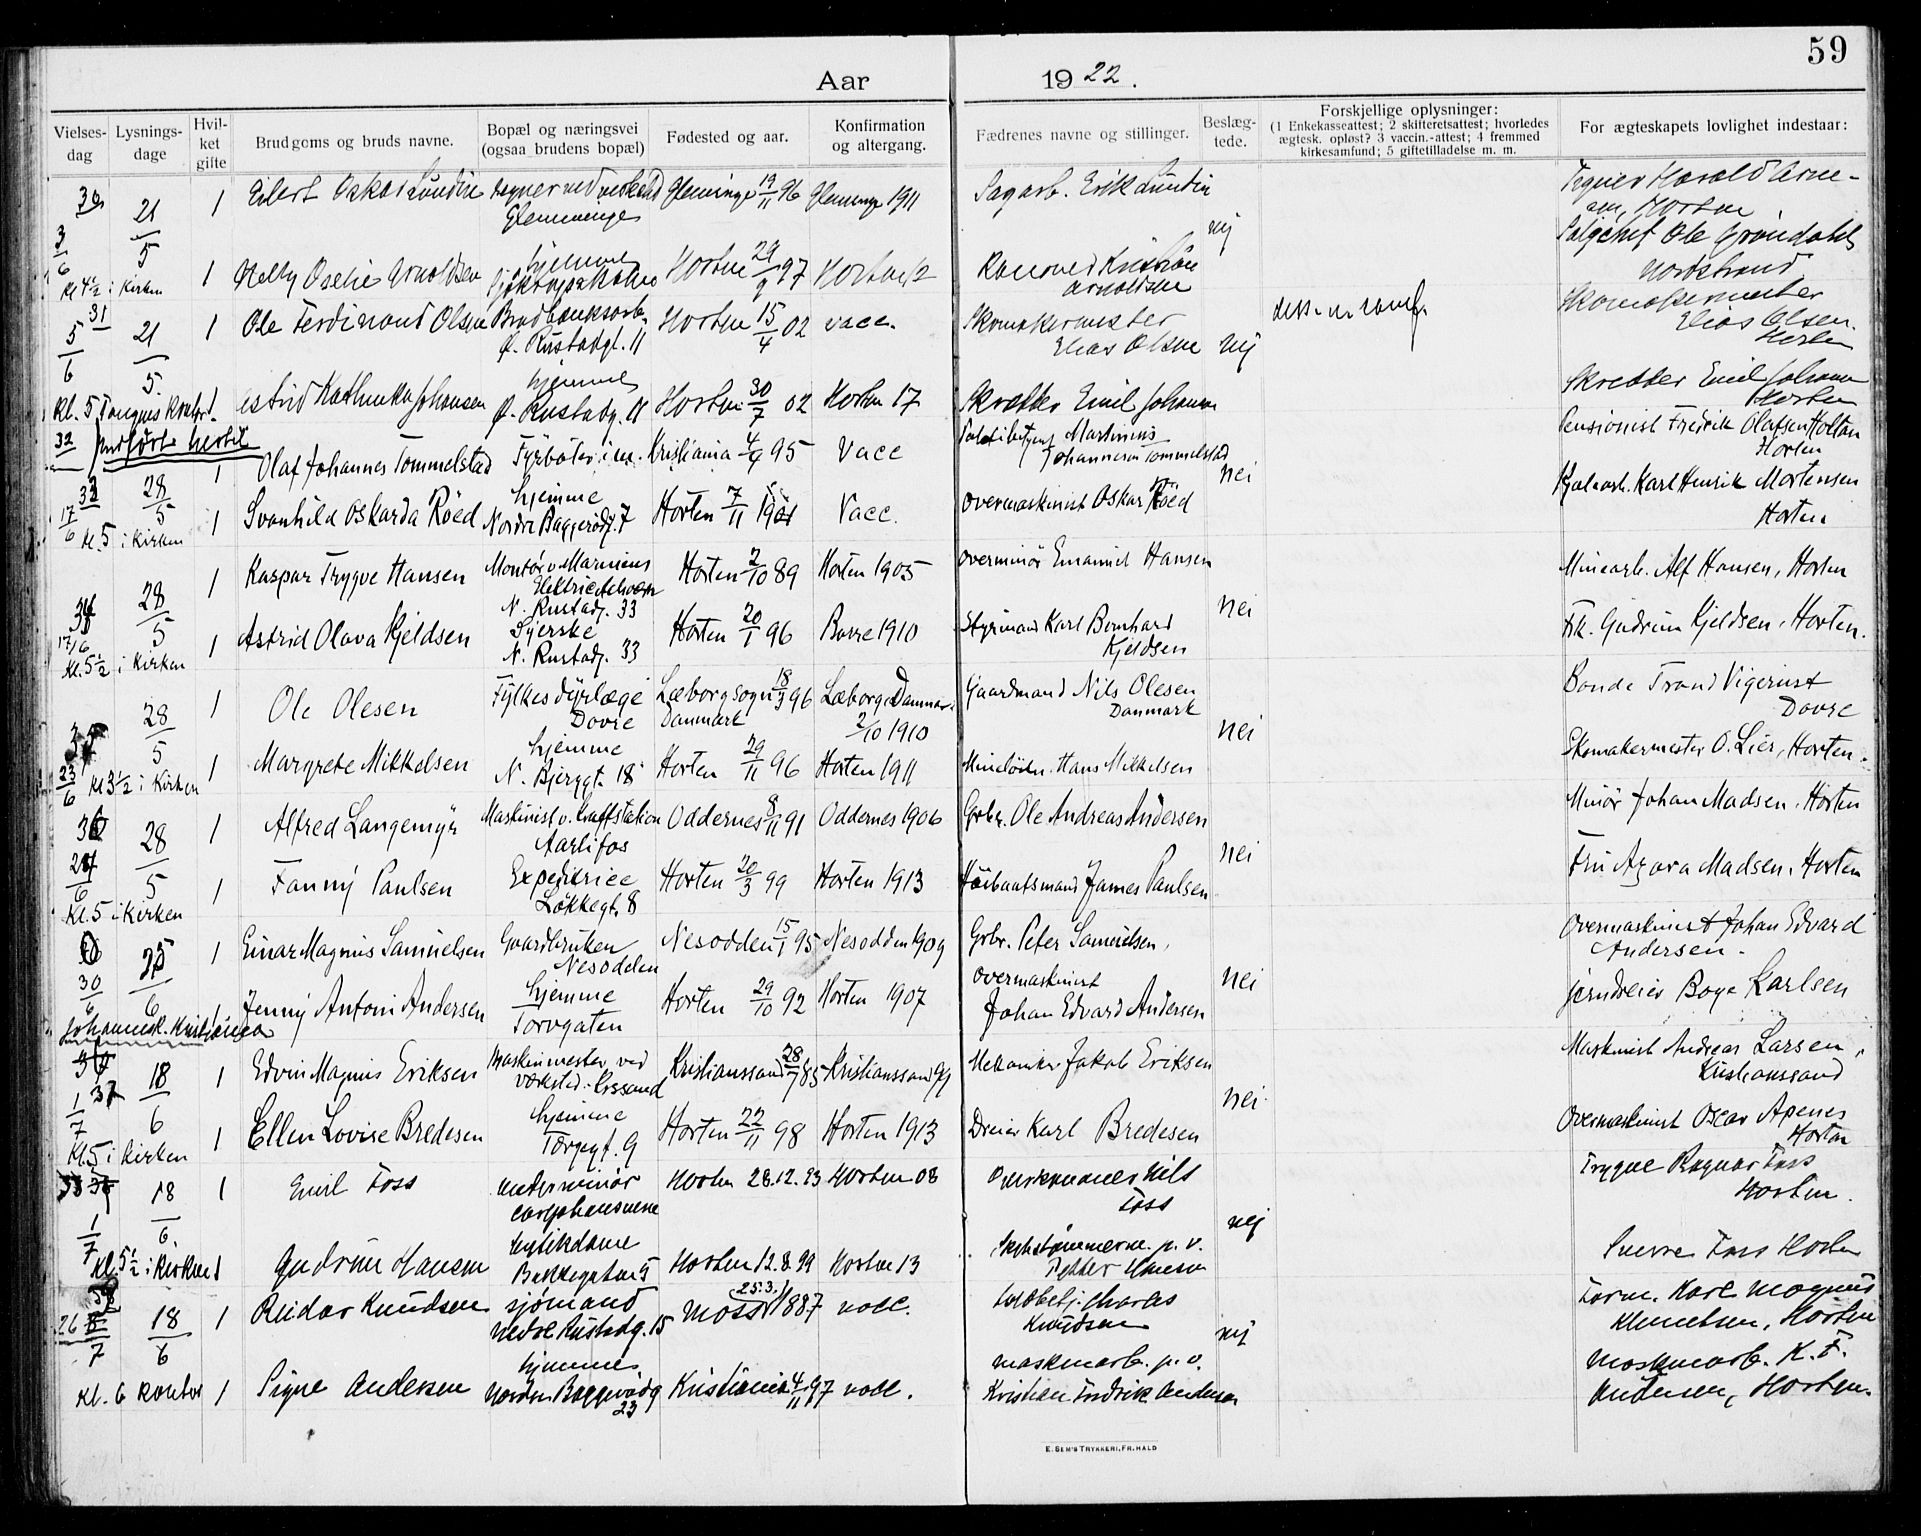 59
Aar 1922.
Vielses-dag
Lysnings-dage
Hvil-ket gifte
Brudgoms og bruds navne.
Bopæl og næringsvei (ogsaa brudens bopæl)
Fødested og aar.
Konfirmation og altergang.
Fædrenes navne og stillinger.
Beslæg-tede.
Forskjellige oplysninger:
(1 Enkekasseattest; 2 skifteretsattest; hvorledes
ægtesk. opløst? 3 vaccin.-attest; 4 fremmed
kirkesamfund; 5 giftetilladelse m. m.
For ægteskapets lovlighet indestaar:
30 21/5 1 Eilert Oskar Lundin Glemminge 19/11 96 Glemminge 1911 Sagarb. Erik Lundin
Glemminge
3/6 nej
kl 4½ i kirken 1 Nelly Oselie Arnoldsen hjemme Horten 29/9 97 Horten 12 Kristian Arnoldsen Nordstrand
31 5/6 21/5 1 Ole Ferdinand Olsen Horten 15/4 02 vacc. Skomakermester Elias Olsen nej Skomakermester Elias Olsen. Horten
Ø. Rustadgt. 11
Kl. 5 1 Astrid Johansen hjemme Ø. Rustadg. 11 Horten 30/7 02 Horten 17 Skrædder Emil Johansen Skredder Emil Johansen Horten
32 1 Olaf Johannes Tommelstad Fyrbøter i m. Kristiania 4/9 95 Vacc Martinius Johannesen Tommelstad nei Pensionist Fredrik Olafsen Holtan Horten
33 17/6 28/5 1 Svanhild Oskarda Röed hjemme Nordre Baggerödg. 7 Horten 7/11 1901 Vacc. Overmaskinist Oskar Röed Karl Henrik Mortensen Horten
Kl. 5 i Kirken
34 28/5 1 Kaspar Trygve Hansen Montør v. Marinens N. Rustadg. 33 Horten 2/10 89 Horten 1905 Overminör Emanuel Hansen nei Minearb. Alf Hansen, Horten
17/6 1 Astrid Olava Kjeldsen Syerske N. Rustadg. 33 Horten 20/1 96 Borre 1910 Styrmand Karl Bernhard Kjeldsen Frk. Gudrun Kjeldsen, Horten.
Kl. 5½ i Kirken
35 28/5 1 Ole Olesen Fylkesdyrlæge Dovre Læborg sogn 18/3 96 Danmark Læborg Danmark 2/10 1910 Gaardmand Nils Olesen Danmark nei Bonde Trond Vigerust Dovre
23/6 Kl 3½ i Kirken 1 Margrete Mikkelsen hjemme N. Bjerggt. 18 Horten 29/11 96 Horten 1911 Hans Mikkelsen Skomakermester O. Lier, Horten.
36 28/5 1 Alfred Langemyr Maskinist v. kraftstation Aarlifos Oddernes 8/11 91 Oddernes 1906 Grbr. Ole Andreas Andersen nei Minör Johan Madsen, Horten
24/6 1 Fanny Paulsen Expeditrice Løkkegt. 8 Horten 20/3 99 Horten 1913 James Paulsen Fru Agora Madsen, Horten
Kl. 5 i Kirken
0 25/6 1 Einar Magnus Samuelsen Gaardbruker Nesodden Nesodden 15/1 95 Nesodden 1909 Grbr. Peter Samuelsen nei Overmaskinist Johan Edvard Andersen.
30/6 1 Jenny Antoni Andersen hjemme Torvgaten Horten 29/10 92 Horten 1907 Overmaskinist Johan Edvard Andersen Jerndreier Boye Karlsen
Johannesk. Kristiania
37 18/6 1 Edvin Magnus Eriksen Maskinmester ved værksted Krssand Kristianssand 28/7 85 Kristianssand 99 Mekaniker Jakob Eriksen nei Maskinist Andreas Larsen, Kristianssand
1/7 1 Ellen Lovise Bredesen hjemme Torggt. 9 Horten 22/11 98 Horten 1913 Dreier Karl Bredesen Overmaskinist Oscar Apenes Horten
Kl. 5 i Kirken
38 18/6 1 Emil Foss underminör Horten 28.12.93 Horten 08 Nils Foss nej Trygve Ragnar Foss Horten.
1/7 Kl. 5½ i kirken 1 Gudrun Hansen butikdame Bakkegaten 5 Horten 12.8.99 Horten 13 Petter Hansen Sverre Foss Horten
39 18/6 1 Reidar Knudsen sjømand Nedre Rustadg. 15 Moss 25.3. 1887 vacc. Charles Knudsen nej Form. Karl Magnus Klemetsen, Horten
26/7 Kl. 6 kontor 1 Signe Andersen hjemme Nordre Baggerødg 23 Kristiania 4/11 97 vacc. maskinarb. p. v. Kristian Fredrik Andersen Maskinarb. K. F. Andersen, Horten.
E. SEM'S TRYKKERI, FR. HALD